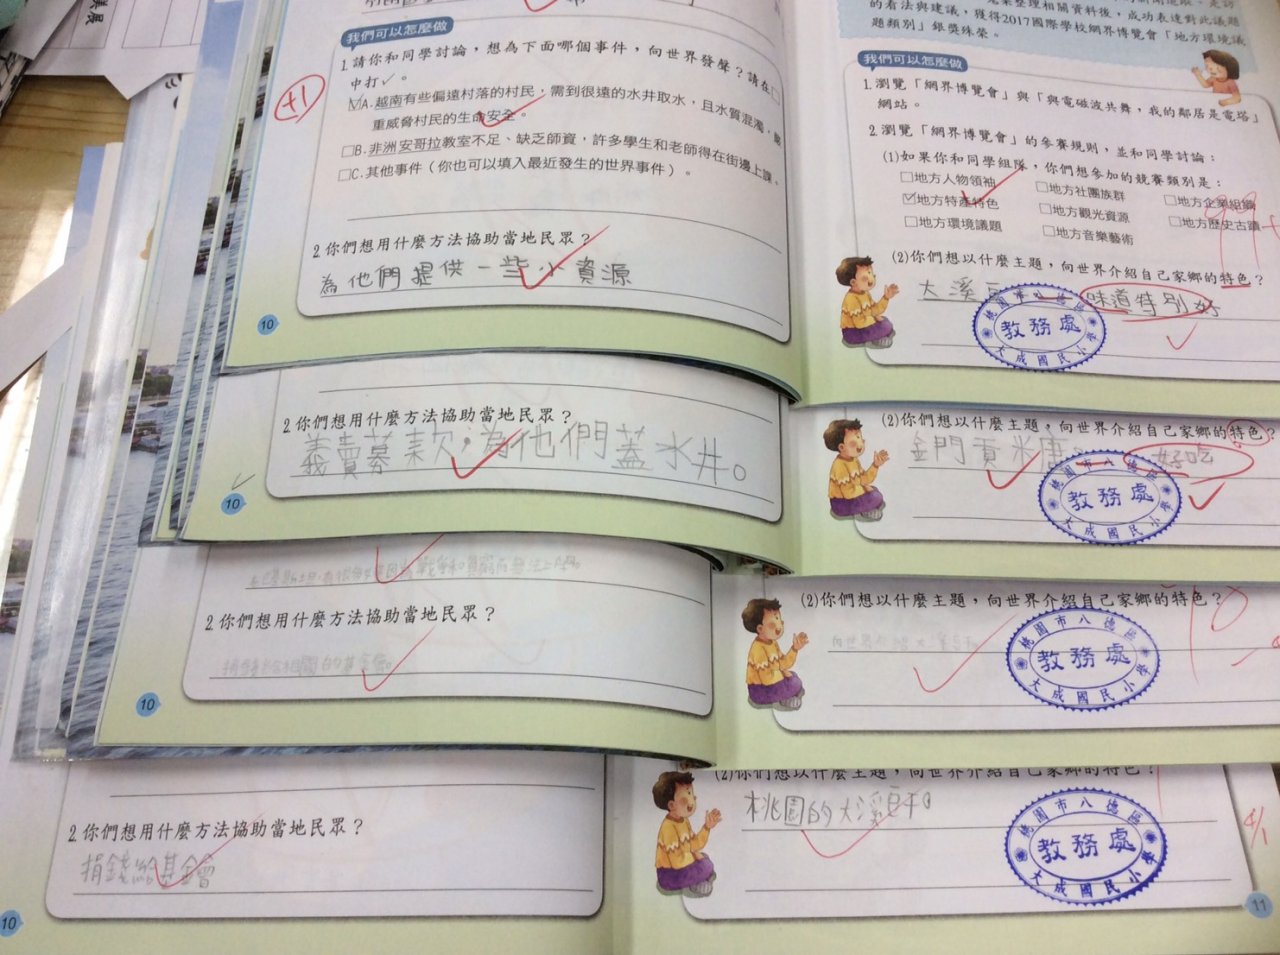 我們可以怎麼做
1.請你和同學討論，想為下面哪個事件，向世界發聲？請在□
中打✓。
+1
☑A.越南有些偏遠村落的村民，需到很遠的水井取水，且水質混濁，嚴
重威脅村民的生命安全。
□B.非洲安哥拉教室不足、缺乏師資，許多學生和老師得在街邊上課。
□C.其他事件（你也可以填入最近發生的世界事件）。
2.你們想用什麼方法協助當地民眾？
為他們提供一些小資源
10
的看法與建議，獲得2017國際學校網界博覽會「地方環境議
題類別」銀獎殊榮。
我們可以怎麼做
1.瀏覽「網界博覽會」與「與電磁波共舞，我的鄰居是電塔」
網站。
2.瀏覽「網界博覽會」的參賽規則，並和同學討論：
(1)如果你和同學組隊，你們想參加的競賽類別是：
□地方人物領袖 □地方社團族群 □地方企業組織
☑地方特產特色 □地方觀光資源 □地方歷史古蹟
□地方環境議題 □地方音樂藝術
(2)你們想以什麼主題，向世界介紹自己家鄉的特色？
大溪 味道特別好
桃園市八德區
教務處
大成國民小學
2.你們想用什麼方法協助當地民眾？
義賣募款，為他們蓋水井。
10
(2)你們想以什麼主題，向世界介紹自己家鄉的特色？
金門貢米唐 好吃
桃園市八德區
教務處
大成國民小學
戰爭和貧窮而無法上學。
2.你們想用什麼方法協助當地民眾？
捐錢給相關的基金會。
10
(2)你們想以什麼主題，向世界介紹自己家鄉的特色？
向世界介紹大溪豆干
桃園市八德區
教務處
大成國民小學
2.你們想用什麼方法協助當地民眾？
捐錢給基金會
10
(2)你們想以什麼主題，向世界介紹自己家鄉的特色？
桃園的大溪豆干。
桃園市八德區
教務處
大成國民小學
11